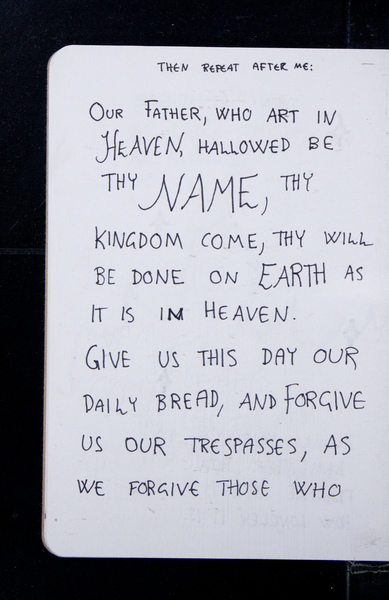 THEN REPEAT AFTER ME:
OUR FATHER, WHO ART IN
HEAVEN, HALLOWED BE
THY NAME, THY
KINGDOM COME, THY WILL
BE DONE ON EARTH AS
IT IS IN HEAVEN.
GIVE US THIS DAY OUR
DAILY BREAD, AND FORGIVE
US OUR TRESPASSES, AS
WE FORGIVE THOSE WHO